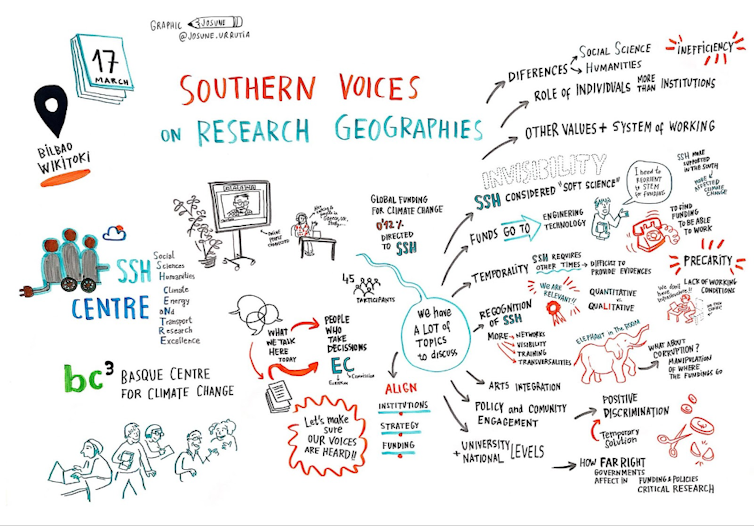 GRAPHIC JOSUNE
@JOSUNE.URRUTIA
17
MARCH
BILBAO
WIKITOKI
SOUTHERN VOICES
ON RESEARCH GEOGRAPHIES
SSH
CENTRE
Social
Sciences
Humanities
Climate
Energy
aNd
Transport
Research
Excellence
bc3 BASQUE CENTRE
FOR CLIMATE CHANGE
GLOBAL FUNDING
FOR CLIMATE CHANGE
0'12%
DIRECTED
TO SSH
45
PARTICIPANTS
WHAT
WE TALK
HERE
TODAY
PEOPLE
WHO
TAKE
DECISIONS
EC
EUROPEAN
COMMISSION
Let's make
sure
OUR VOICES
ARE HEARD!!
ALIGN
INSTITUTIONS
STRATEGY
FUNDING
We have
A LOT OF
TOPICS
to discuss
DIFERENCES
Social Science
HUMANITIES
iNEFFICIENCY
ROLE OF INDIVIDUALS MORE THAN INSTITUTIONS
OTHER VALUES + SYSTEM OF WORKING
INVISIBILITY
SSH CONSIDERED "SOFT SCIENCE"
FUNDS GO TO
ENGINERING
TECHNOLOGY
I need to
REORIENT
to STEM
SSH MORE
SUPPORTED
IN THE SOUTH
MORE
AFFECTED
CLIMATE
CHANGE
TO FIND
FUNDING
TO BE ABLE
TO WORK
TEMPORALITY
SSH REQUIRES
OTHER TIMES
DIFFICULT TO
PROVIDE EVIDENCES
PRECARITY
LACK OF WORKING
CONDITIONS
RECOGNITION
OF SSH
MORE
NETWORKS
VISIBILITY
TRAINING
TRANSVERSALITIES
WE ARE
RELEVANT!!
QUANTITATIVE
vs
QUALITATIVE
We don't
have
ELEPHANT in the ROOM
WHAT ABOUT
CORRUPTION?
MANIPULATION
OF WHERE
THE FUNDINGS GO
ARTS INTEGRATION
POLICY and COMUNITY
ENGAGEMENT
POSITIVE
DISCRIMINATION
Temporary
Solution
+ UNIVERSITY
NATIONAL LEVELS
HOW FAR RIGHT
GOVERNMENTS
AFFECT IN FUNDING & POLICIES
CRITICAL RESEARCH